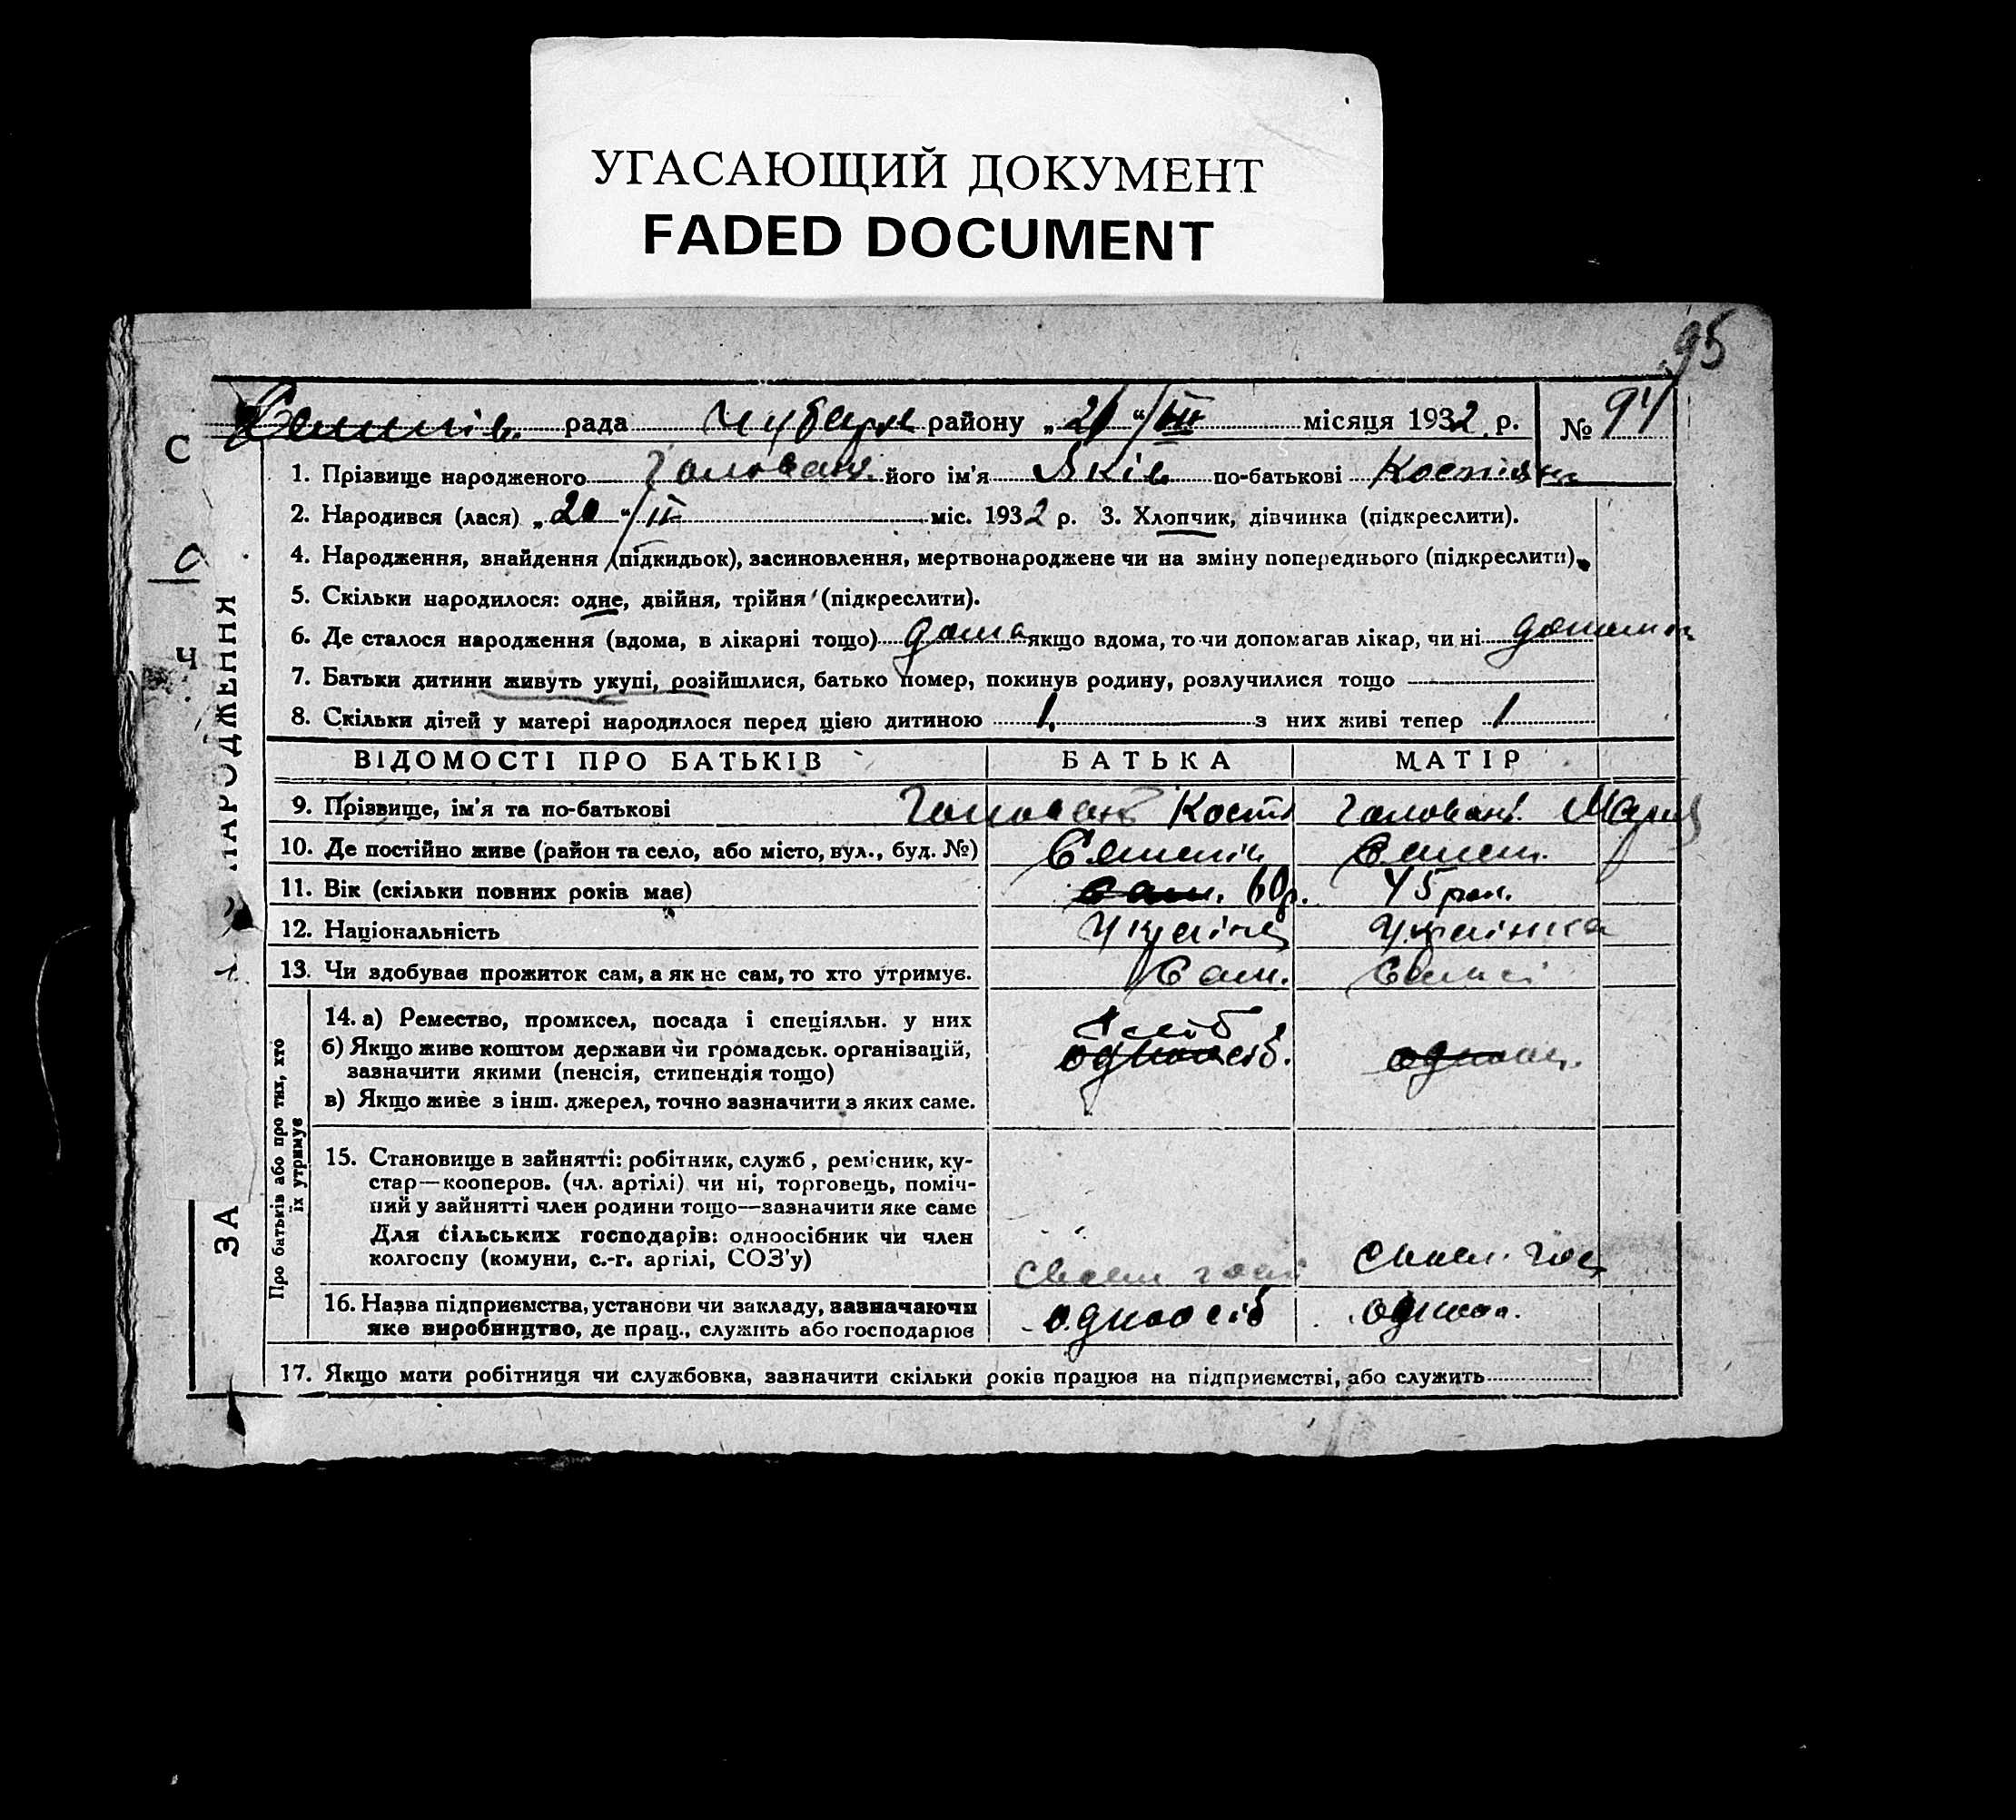 УГАСАЮЩИЙ ДОКУМЕНТ
FADED DOCUMENT
95
рада Чубарів району „21“/III місяця 1932 р. № 94
1. Прізвище народженого Головань його ім'я Яків по-батькові
2. Народився (лася) „20“/II міс. 1932 р. 3. Хлопчик, дівчинка (підкреслити).
4. Народження, знайдення (підкидьок), засиновлення, мертвонароджене чи на зміну попереднього (підкреслити).
5. Скільки народилося: одне, двійня, трійня (підкреслити).
6. Де сталося народження (вдома, в лікарні тощо) дома якщо вдома, то чи допомагав лікар, чи ні
7. Батьки дитини живуть укупі, розійшлися, батько помер, покинув родину, розлучилися тощо
8. Скільки дітей у матері народилося перед цією дитиною 1. з них живі тепер 1
ВІДОМОСТІ ПРО БАТЬКІВ БАТЬКА МАТІР
9. Прізвище, ім'я та по-батькові Головань Кость Головань Мария
10. Де постійно живе (район та село, або місто, вул., буд. №)
11. Вік (скільки повних років має) сам. 60р. 45 рок.
12. Національність Украінец Украінка
13. Чи здобуває прожиток сам, а як не сам, то хто утримує. Сам. Сама
Про батьків або про тих, хто їх утримує
14. а) Ремество, промисел, посада і спеціяльн. у них
б) Якщо живе коштом держави чи громадськ. організацій, зазначити якими (пенсія, стипендія тощо) одноосіб.
в) Якщо живе з інш. джерел, точно зазначити з яких саме.
15. Становище в зайнятті: робітник, служб, ремісник, ку-
стар—кооперов. (чл. артілі) чи ні, торговець, поміч-
ний у зайнятті член родини тощо—зазначити яке саме
Для сільських господарів: одноосібник чи член
колгоспу (комуни, с.-г. артілі, СОЗ'у)
16. Назва підприємства, установи чи закладу, зазначаючи
яке виробництво, де прац., служить або господарює одноосіб одноо.
17. Якщо мати робітниця чи службовка, зазначити скільки років працює на підприємстві, або служить
С
Ч
ЗА
НАРОДЖЕННЯ